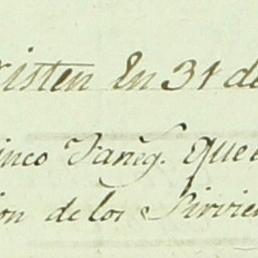 xisten En 31 de
inco Faneg. que
ion de los Sirvie